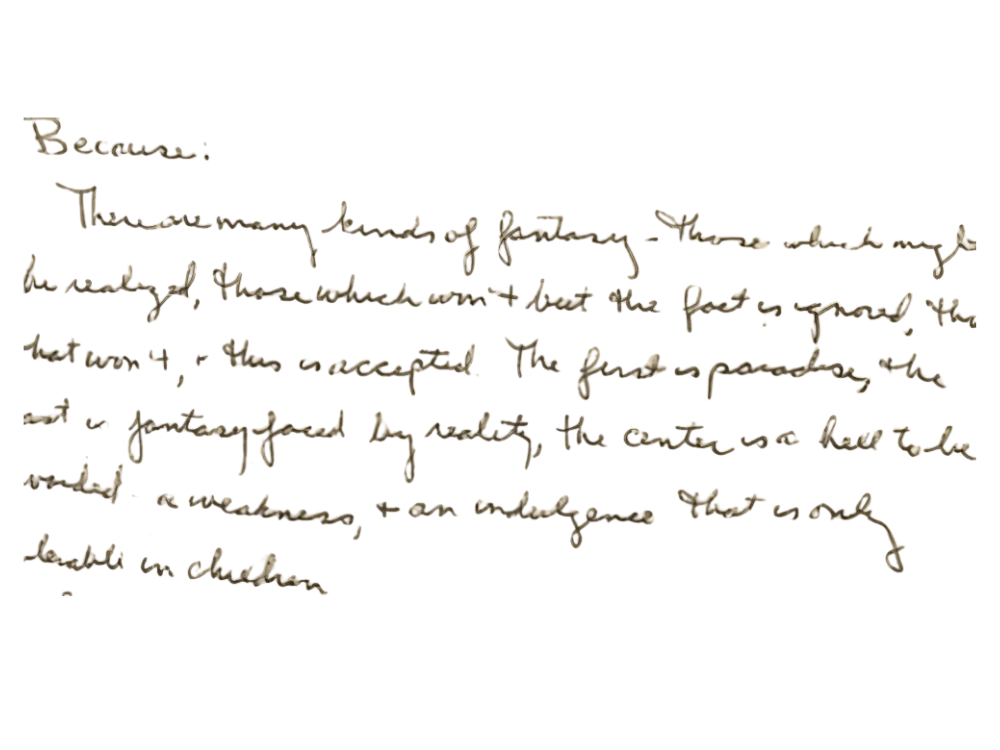 Because:
There are many kinds of fantasy - those which might
be realized, those which won't but the fact is ignored, tho
hat won't, + this is accepted. The first is paradise, the
ast is fantasy faced by reality, the center is a hell to be
voided a weakness, + an indulgence that is only
lerable in children